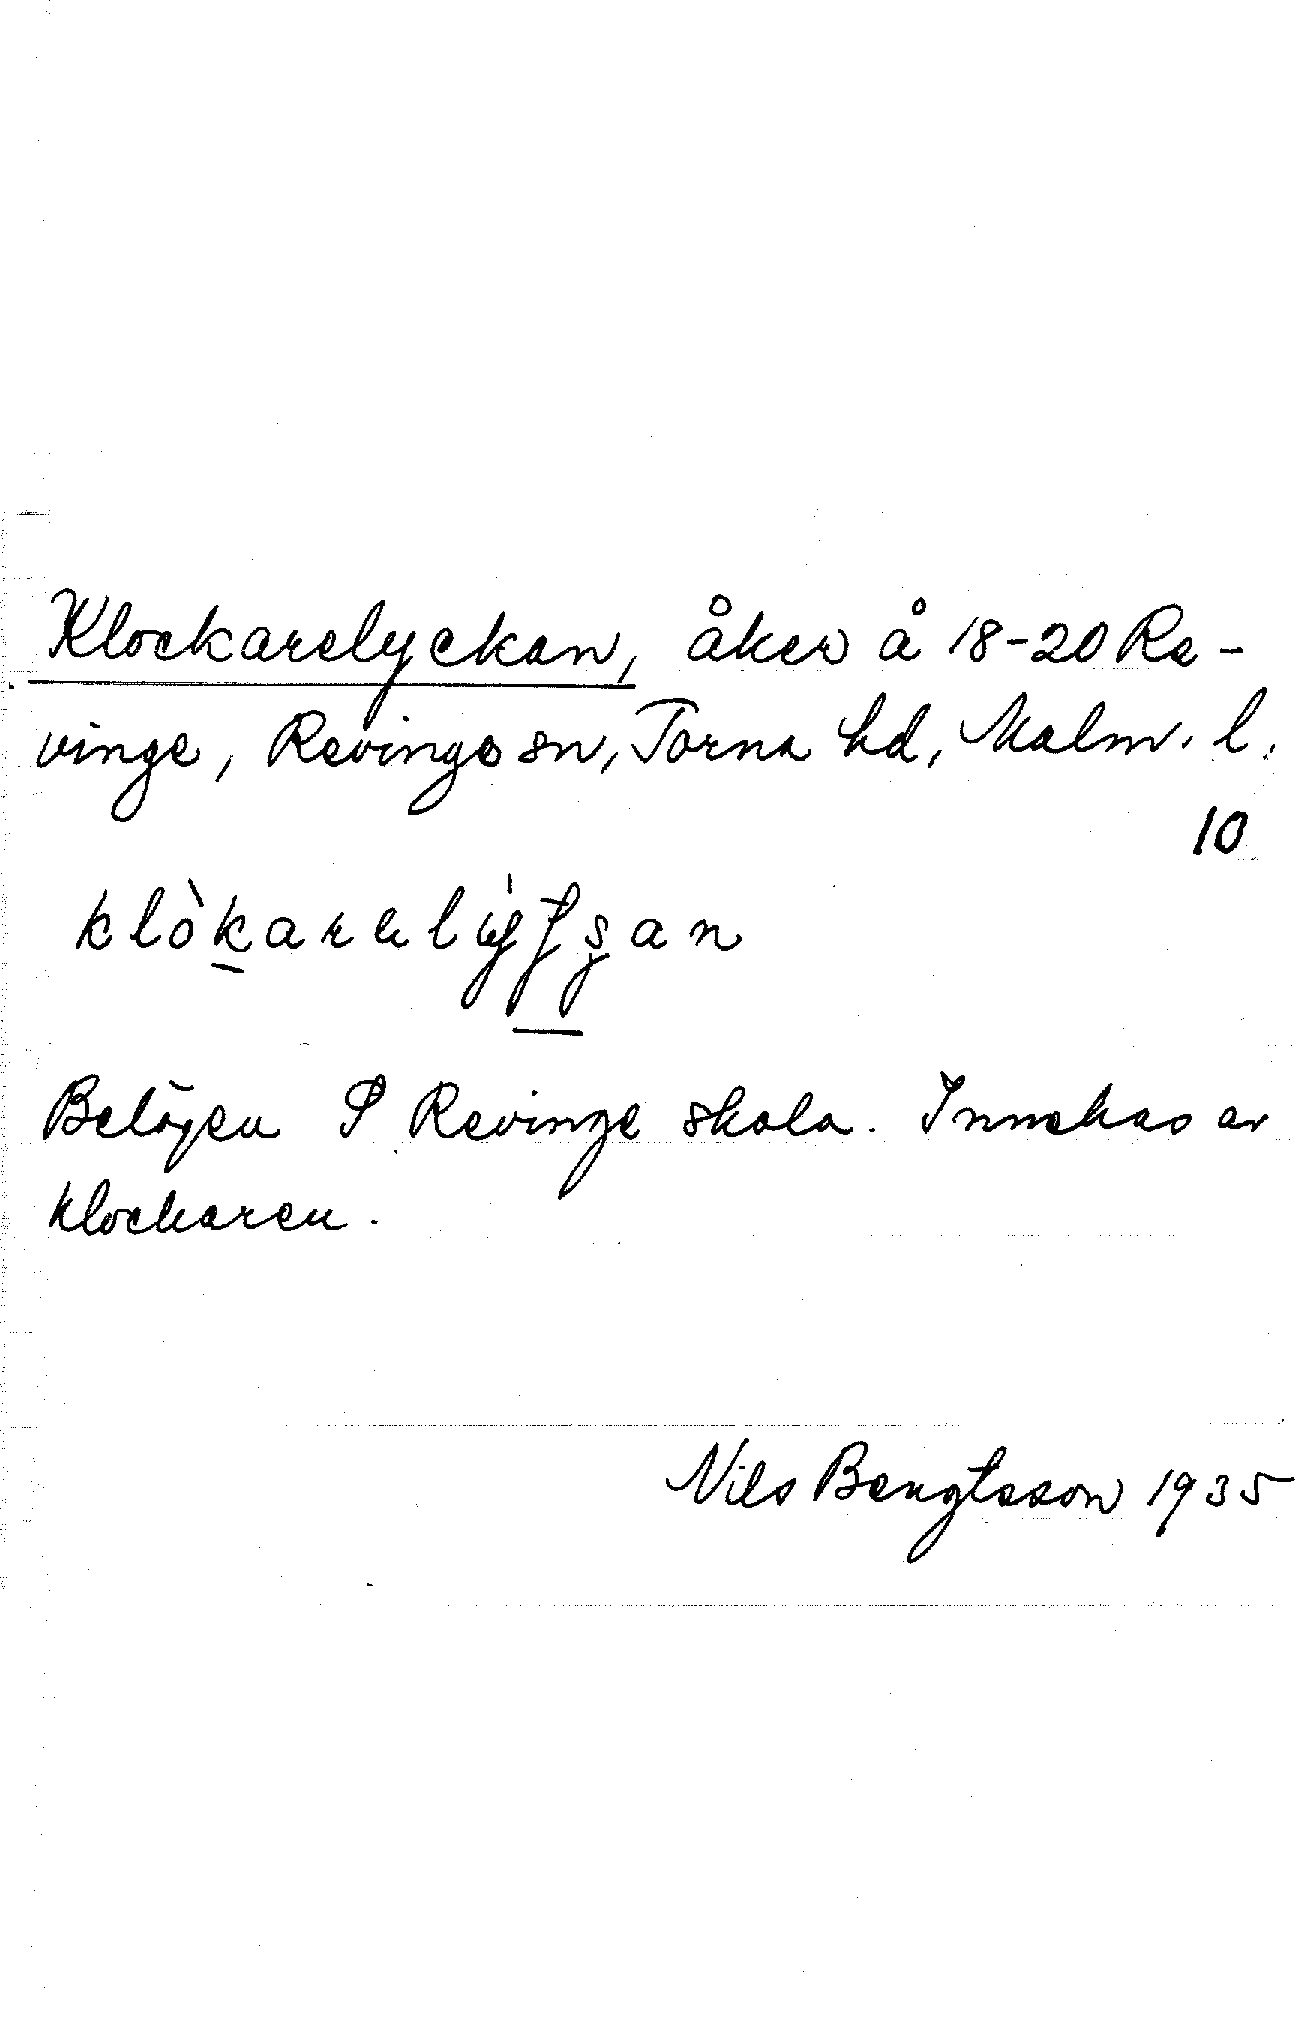 Klockarelyckan, åker å 18-20 Re-
vinge, Revinge sn, Torna hd, Malm. l.
10
Belägen S Revinge skola. Innehas av
klockaren.
Nils Bengtsson 1935